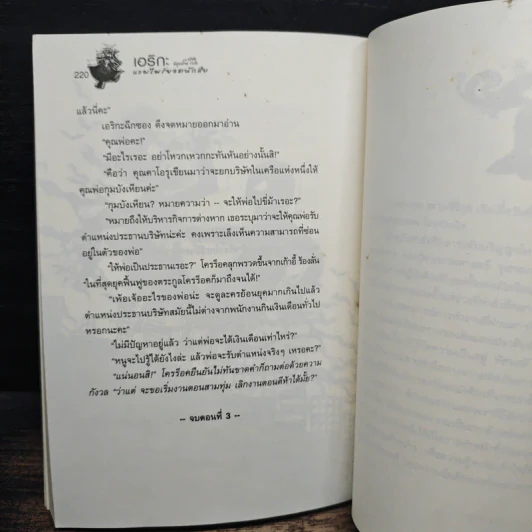 220
เอริกะ
แล้วนี่คะ"
เอริกะฉีกซอง ดึงจดหมายออกมาอ่าน
"คุณพ่อคะ!"
"มีอะไรเรอะ อย่าโหวกเหวกกะทันหันอย่างนั้นสิ!"
"คือว่า คุณคาโอรุเขียนมาว่าจะยกบริษัทในเครือแห่งหนึ่งให้
คุณพ่อกุมบังเหียนค่ะ"
"กุมบังเหียน? หมายความว่า -- จะให้พ่อไปขี่ม้าเรอะ?"
"หมายถึงให้บริหารกิจการต่างหาก เธอระบุมาว่าจะให้คุณพ่อรับ
ตำแหน่งประธานบริษัทน่ะค่ะ คงเพราะเล็งเห็นความสามารถที่ซ่อน
อยู่ในตัวของพ่อ"
"ให้พ่อเป็นประธานเรอะ?" โครร็อคลุกพรวดขึ้นจากเก้าอี้ ร้องลั่น
"ในที่สุดยุคฟื้นฟูของตระกูลโครร็อคก็มาถึงจนได้!"
"เพ้อเจ้ออะไรของพ่อน่ะ จะดูละครย้อนยุคมากเกินไปแล้ว
ตำแหน่งประธานบริษัทสมัยนี้ไม่ต่างจากพนักงานกินเงินเดือนทั่วไป
หรอกนะคะ"
"ไม่มีปัญหาอยู่แล้ว ว่าแต่พ่อจะได้เงินเดือนเท่าไหร่?"
"หนูจะไปรู้ได้ยังไงล่ะ แล้วพ่อจะรับตำแหน่งจริงๆ เหรอคะ?"
"แน่นอนสิ!" โครร็อคยืนยันไม่ทันขาดคำก็ถามต่อด้วยความ
กังวล "ว่าแต่ จะขอเริ่มงานตอนสามทุ่ม เลิกงานตอนตีห้าได้มั้ย?"
– จบตอนที่ 3 –